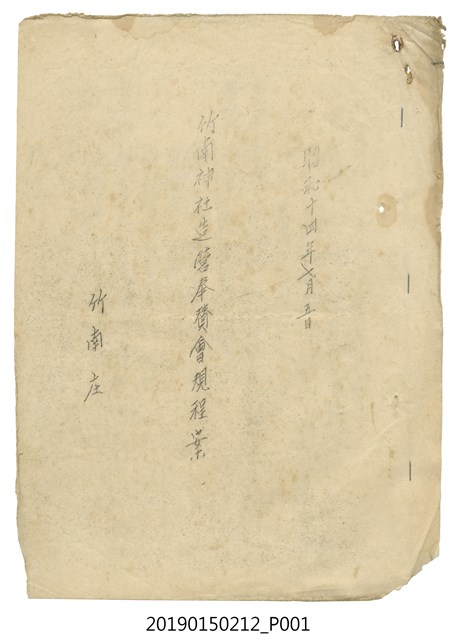 昭和十四年七月五日
竹南神社造營奉賛會規程案
竹南庄
20190150212_P001